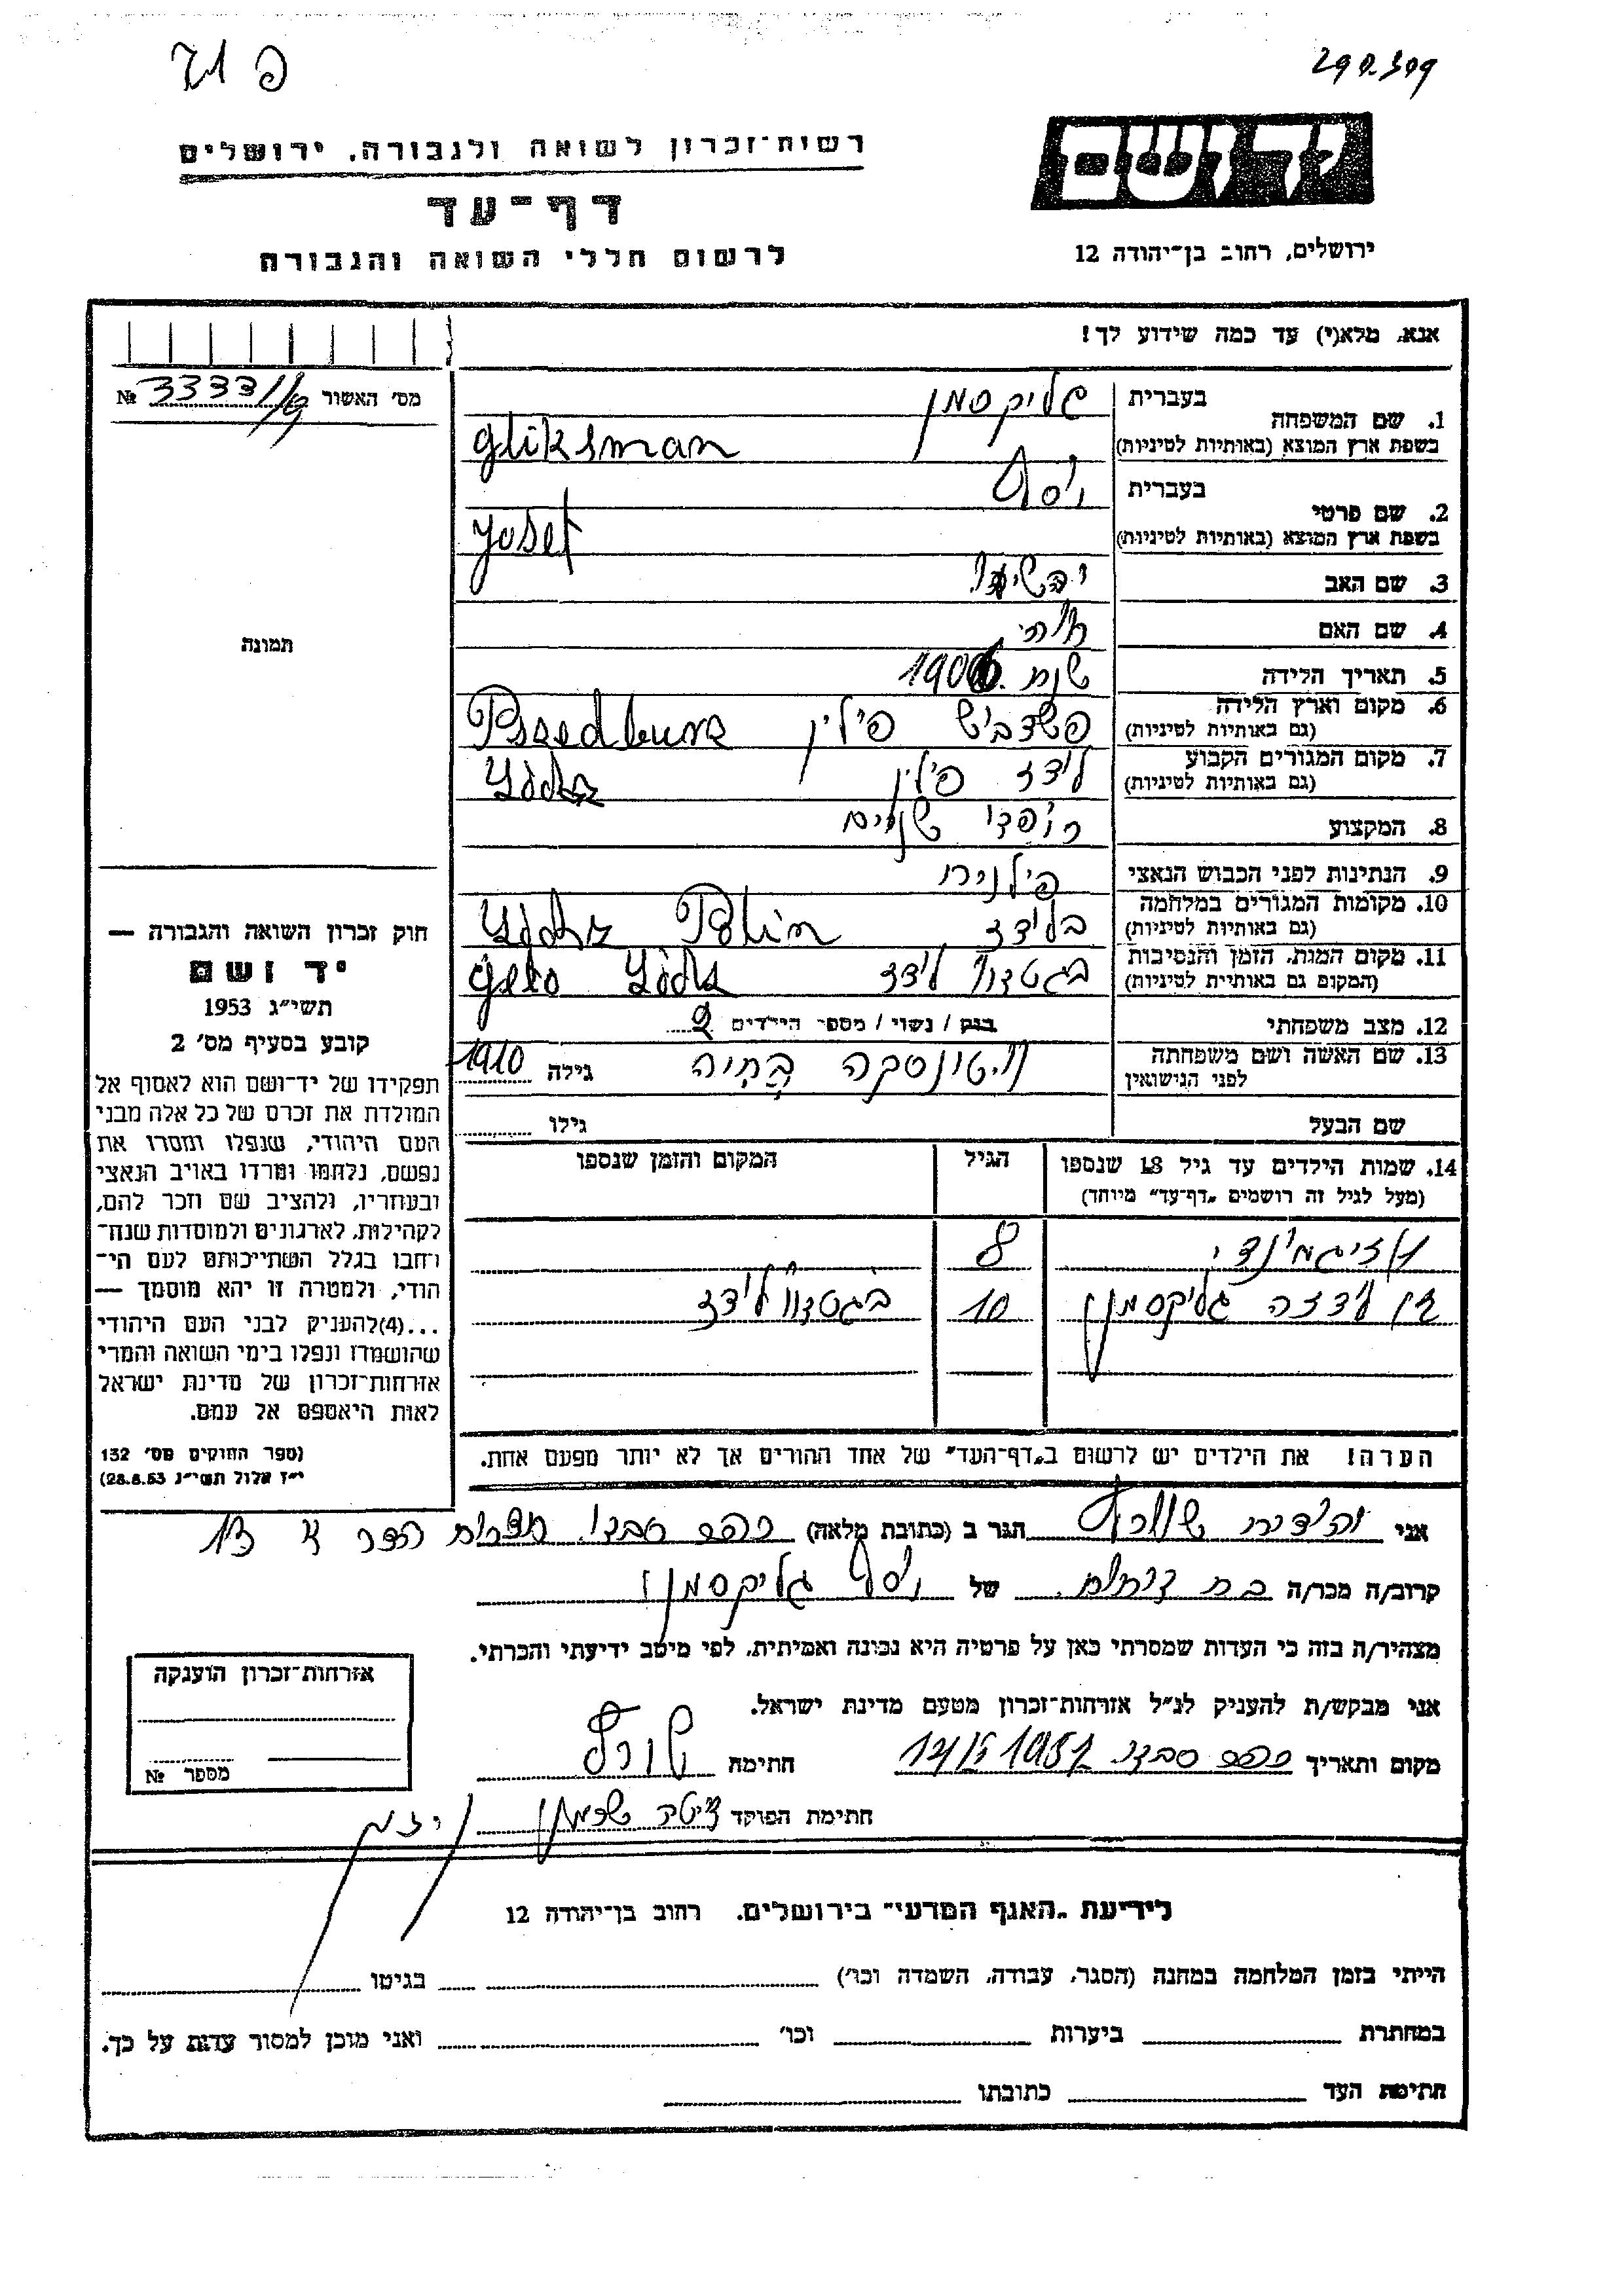 פ 71ד
290.309
רשות־זכרון לשואה ולגבורה, ירושלים
דף־עד
לרשום חללי השואה והגבורה
יד ושם
ירושלים, רחוב בן־יהודה 12
אנא, מלא(י) עד כמה שידוע לך!
מס׳ האשור № 3333/
1. שם המשפחה בעברית גליקסמן
בשפת ארץ המוצא (באותיות לטיניות) Gliksman
2. שם פרטי בעברית יוסף
בשפת ארץ המוצא (באותיות לטיניות) Yosef
3. שם האב
4. שם האם
5. תאריך הלידה שנת 1906
6. מקום וארץ הלידה פולין
(גם באותיות לטיניות)
7. מקום המגורים הקבוע לודז פולין
(גם באותיות לטיניות) Łódz
8. המקצוע
9. הנתינות לפני הכבוש הנאצי
10. מקומות המגורים במלחמה בלודז
(גם באותיות לטיניות) Łódz Polin
11. מקום המות, הזמן והנסיבות בגטו לודז
(המקום גם באותיות לטיניות) Geto Łódz
12. מצב משפחתי רווק / נשוי / מספר הילדים 2
13. שם האשה ושם משפחתה
לפני הנישואין גילה 1910
שם הבעל גילו
14. שמות הילדים עד גיל 18 שנספו הגיל המקום והזמן שנספו
(מעל לגיל זה רושמים „דף־עד״ מיוחד)
8
גליקסמן 10 בגטו לודז
הערה! את הילדים יש לרשום ב„דף־העד״ של אחד ההורים אך לא יותר מפעם אחת.
תמונה
חוק זכרון השואה והגבורה —
יד ושם
תשי״ג 1953
קובע בסעיף מס׳ 2
תפקידו של יד־ושם הוא לאסוף אל
המולדת את זכרם של כל אלה מבני
העם היהודי, שנפלו ומסרו את
נפשם, נלחמו ומרדו באויב הנאצי
ובעוזריו, ולהציב שם וזכר להם,
לקהילות, לארגונים ולמוסדות שנח־
רבו בגלל השתייכותם לעם הי־
הודי, ולמטרה זו יהא מוסמך —
...(4)להעניק לבני העם היהודי
שהושמדו ונפלו בימי השואה והמרי
אזרחות־זכרון של מדינת ישראל
לאות היאספם אל עמם.
(ספר החוקים מס׳ 132
י״ז אלול תשי״ג 28.8.53)
אני יהודית שוורץ הגר ב (כתובת מלאה) כפר סבא
קרוב/ה מכר/ה בת דודתו של יוסף גליקסמן
מצהיר/ה בזה כי העדות שמסרתי כאן על פרטיה היא נכונה ואמיתית, לפי מיטב ידיעתי והכרתי.
אני מבקש/ת להעניק לנ״ל אזרחות־זכרון מטעם מדינת ישראל.
מקום ותאריך כפר סבא חתימה
חתימת הפוקד
אזרחות־זכרון הוענקה
מספר №
לידיעת „האגף המדעי״ בירושלים, רחוב בן־יהודה 12
הייתי בזמן המלחמה במחנה (הסגר, עבודה, השמדה וכו׳) בגיטו
במחתרת ביערות וכו׳ ואני מוכן למסור עדות על כך.
חתימת העד כתובתו